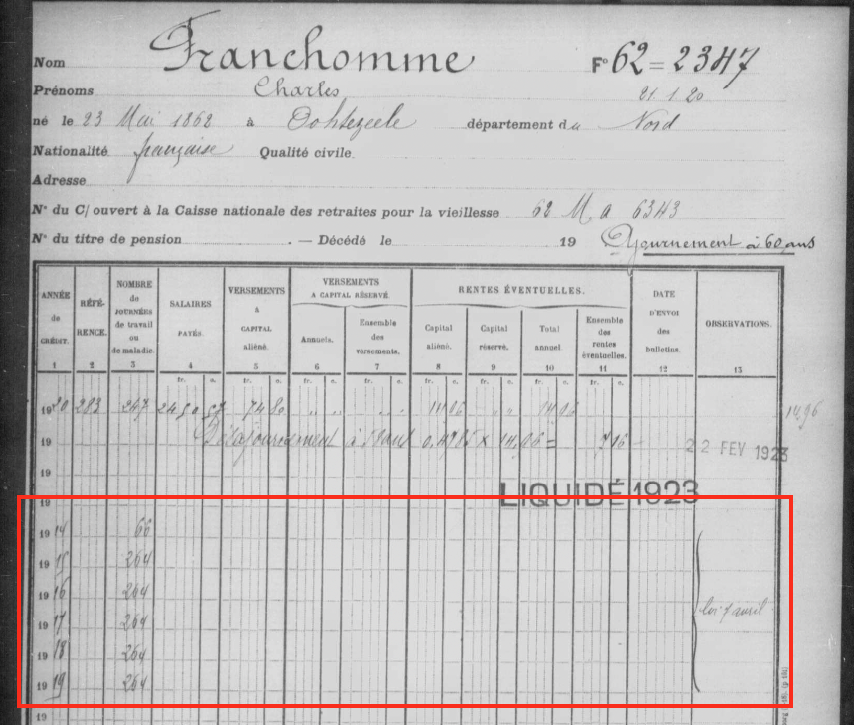 Nom Franchomme F° 62 = 2347
Prénoms Charles 21 1 20
né le 23 Mai 1862 à Ochtezeele département du Nord
Nationalité française Qualité civile
Adresse
N° du C/ ouvert à la Caisse nationale des retraites pour la vieillesse 62 M a 6343
N° du titre de pension — Décédé le 19 Ajournement à 60 ans
ANNÉE de CRÉDIT. 1
RÉFÉRENCE. 2
NOMBRE de JOURNÉES de travail ou de maladie. 3
SALAIRES PAYÉS. 4
VERSEMENTS à CAPITAL aliéné. 5
VERSEMENTS A CAPITAL RÉSERVÉ.
Annuels. 6
Ensemble des versements. 7
RENTES ÉVENTUELLES.
Capital aliéné. 8
Capital réservé. 9
Total annuel. 10
Ensemble des rentes éventuelles. 11
DATE D'ENVOI des bulletins. 12
OBSERVATIONS. 13
fr. c. fr. c. fr. c. fr. c. fr. c. fr. c. fr. c. fr. c.
1920 283 247 2450 74 80 " " " " 14 06 " " 14 06 14,96
19 à 58 ans 0,4785 × 14,06 = 22 FEV 1923
19
19 LIQUIDÉ 1923
1914 66
1915 264
1916 264
1917 264 loi 7 avril
1918 264
1919 264
19